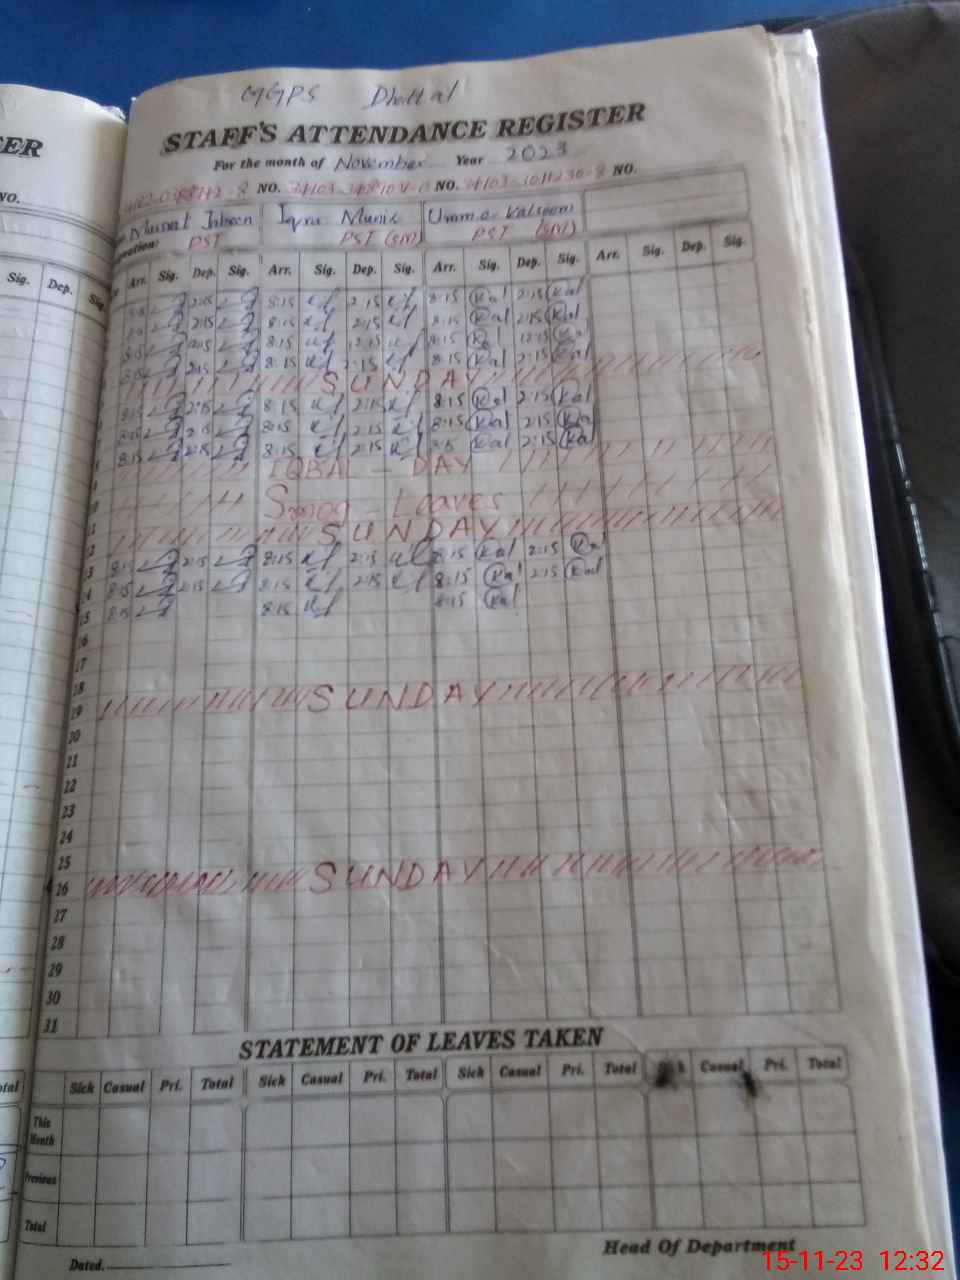 GGPS Dhattal
STAFF'S ATTENDANCE REGISTER
For the month of November Year 2023
NO. NO. NO.
Musrat Jabeen Iqra Munir Umm-e-Kalsoom
PST PST (SM) PST (SM)
Arr. Sig. Dep. Sig. Arr. Sig. Dep. Sig. Arr. Sig. Dep. Sig. Arr. Sig. Dep. Sig.
8:15 2:15 8:15 2:15 8:15 Kal 2:15 Kal
8:15 2:15 8:15 2:15 8:15 Kal 2:15 Kal
8:15 12:15 8:15 12:15 8:15 Kal 12:15 Kal
8:15 2:15 8:15 2:15 8:15 Kal 2:15 Kal
SUNDAY
8:15 2:15 8:15 2:15 8:15 Kal 2:15 Kal
8:15 2:15 8:15 2:15 8:15 Kal 2:15 Kal
8:15 2:15 8:15 2:15 Kal 2:15 Kal
IQBAL - DAY
Smog Leaves
SUNDAY
8:15 2:15 8:15 2:15 8:15 Kal 2:15 Kal
8:15 2:15 8:15 2:15 8:15 Kal 2:15 Kal
8:15 8:15 8:15 Kal
16
17
18
19 SUNDAY
20
21
22
23
24
25
26 SUNDAY
27
28
29
30
31
STATEMENT OF LEAVES TAKEN
Sick Casual Pri. Total Sick Casual Pri. Total Sick Casual Pri. Total Casual Pri. Total
This Month
Previous
Total
Head Of Department
Dated.
15-11-23 12:32
ER
NO.
Sig. Dep.